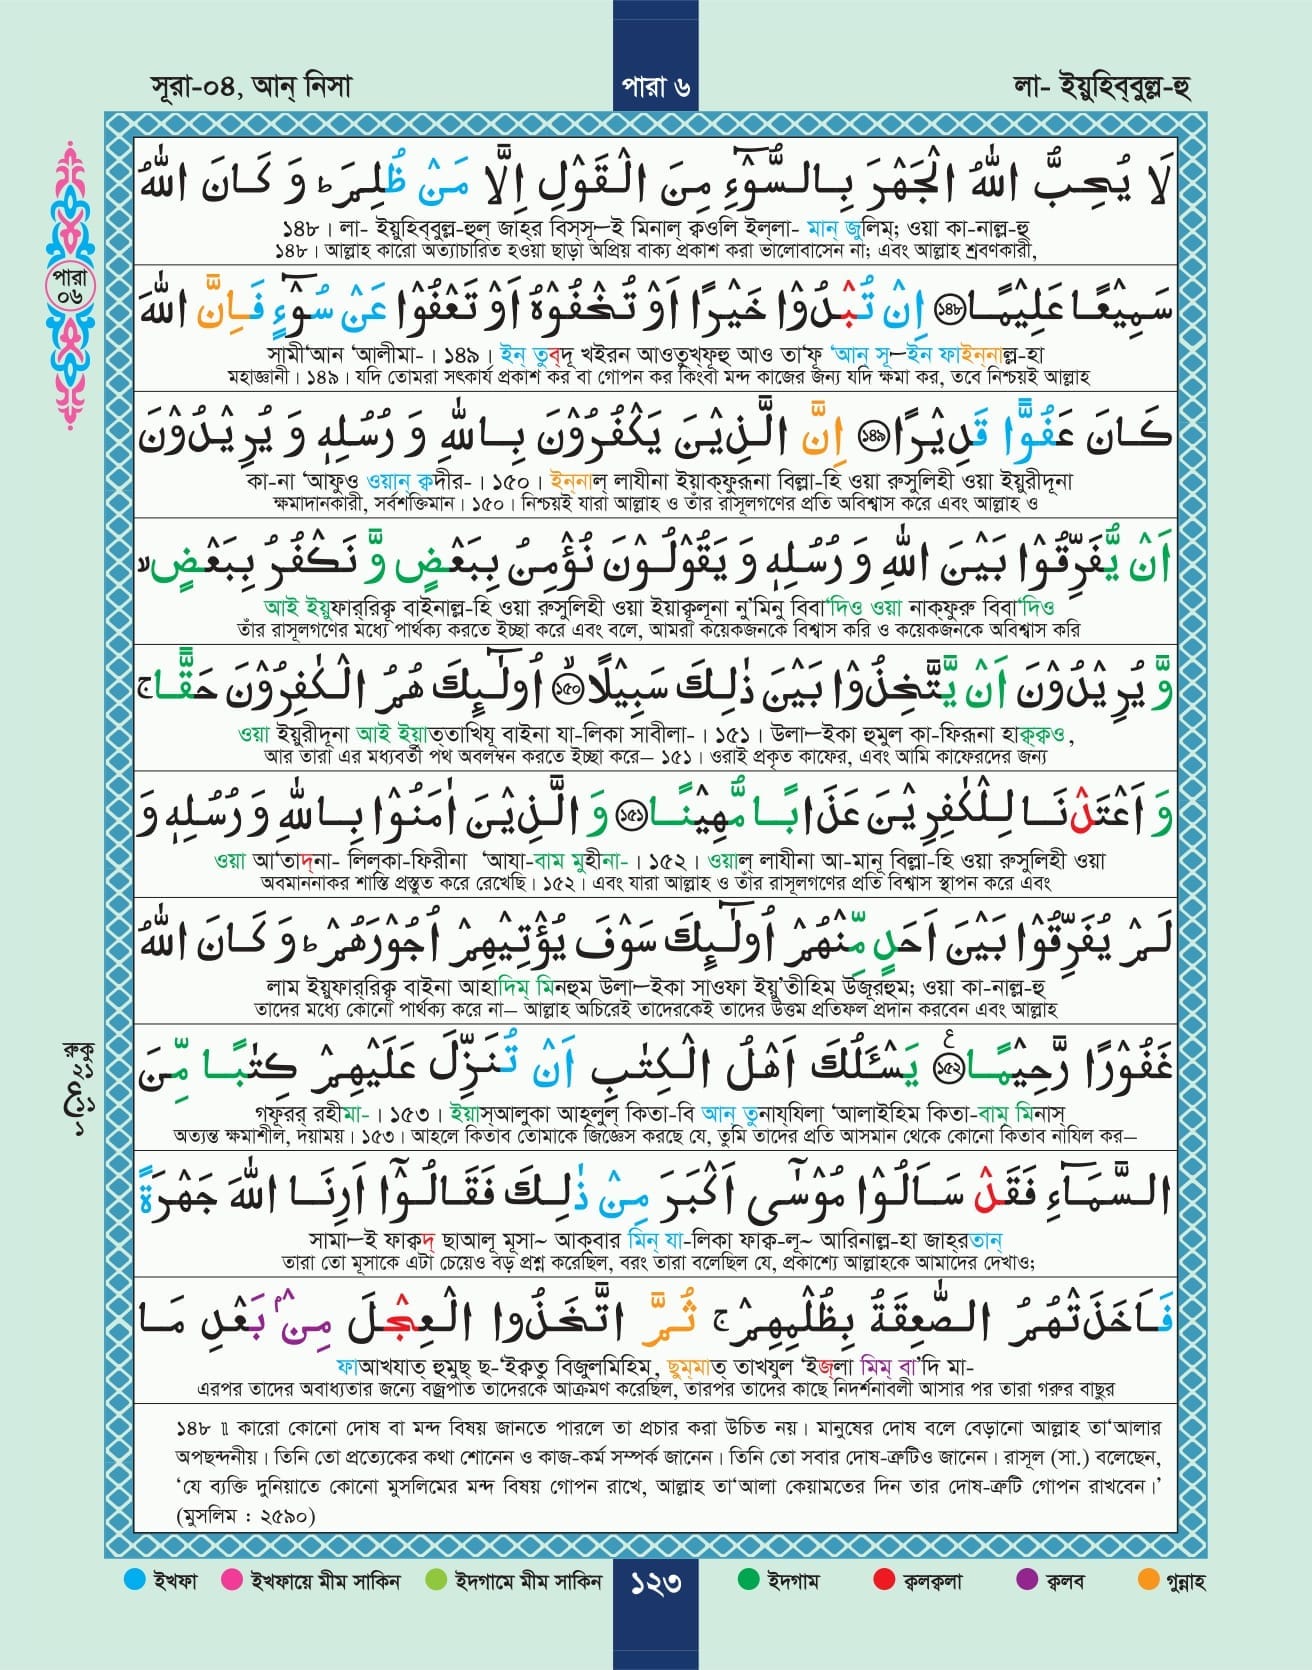 সূরা-০৪, আন্ নিসা
পারা ৬
লা- ইয়ুহিব্বুল্ল-হু
পারা
০৬
لَا يُحِبُّ اللّٰهُ الْجَهْرَ بِالسُّوْٓءِ مِنَ الْقَوْلِ اِلَّا مَنْ ظُلِمَ ؕ وَ كَانَ اللّٰهُ
১৪৮। লা- ইয়ুহিব্বুল্ল-হুল্ জাহ্‌র বিস্‌সূ—ই মিনাল্ ক্বওলি ইল্‌লা- মান্ জুলিম্; ওয়া কা-নাল্ল-হু
১৪৮। আল্লাহ কারো অত্যাচারিত হওয়া ছাড়া অপ্রিয় বাক্য প্রকাশ করা ভালোবাসেন না; এবং আল্লাহ শ্রবণকারী,
سَمِيْعًا عَلِيْمًا ﴿۱۴۸﴾ اِنْ تُبْدُوْا خَيْرًا اَوْ تُخْفُوْهُ اَوْ تَعْفُوْا عَنْ سُوْٓءٍ فَاِنَّ اللّٰهَ
সামী‘আন ‘আলীমা-। ১৪৯। ইন্ তুব্দূ খইরন আওতুখ্ফূহু আও তা‘ফূ ‘আন্ সূ—ইন ফাইন্নাল্ল-হা
মহাজ্ঞানী। ১৪৯। যদি তোমরা সৎকার্য প্রকাশ কর বা গোপন কর কিংবা মন্দ কাজের জন্য যদি ক্ষমা কর, তবে নিশ্চয়ই আল্লাহ
كَانَ عَفُوًّا قَدِيْرًا ﴿۱۴۹﴾ اِنَّ الَّذِيْنَ يَكْفُرُوْنَ بِاللّٰهِ وَ رُسُلِهٖ وَ يُرِيْدُوْنَ
কা-না ‘আফুও ওয়ান্ ক্বদীর-। ১৫০। ইন্নাল্ লাযীনা ইয়াক্ফুরূনা বিল্লা-হি ওয়া রুসুলিহী ওয়া ইয়ুরীদূনা
ক্ষমাদানকারী, সর্বশক্তিমান। ১৫০। নিশ্চয়ই যারা আল্লাহ ও তাঁর রাসূলগণের প্রতি অবিশ্বাস করে এবং আল্লাহ ও
اَنْ يُّفَرِّقُوْا بَيْنَ اللّٰهِ وَ رُسُلِهٖ وَ يَقُوْلُوْنَ نُؤْمِنُ بِبَعْضٍ وَّ نَكْفُرُ بِبَعْضٍ ۙ
আই ইয়ুফার্‌রিক্বূ বাইনাল্ল-হি ওয়া রুসুলিহী ওয়া ইয়াক্বূলূনা নু’মিনু বিবা‘দিও ওয়া নাক্ফুরু বিবা‘দিও
তাঁর রাসূলগণের মধ্যে পার্থক্য করতে ইচ্ছা করে এবং বলে, আমরা কয়েকজনকে বিশ্বাস করি ও কয়েকজনকে অবিশ্বাস করি
وَّ يُرِيْدُوْنَ اَنْ يَّتَّخِذُوْا بَيْنَ ذٰلِكَ سَبِيْلًا ۙ﴿۱۵۰﴾ اُولٰٓئِكَ هُمُ الْكٰفِرُوْنَ حَقًّا ۚ
ওয়া ইয়ুরীদূনা আই ইয়্যাত্তাখিযূ বাইনা যা-লিকা সাবীলা-। ১৫১। উলা—ইকা হুমুল কা-ফিরূনা হাক্ব্‌ক্বও,
আর তারা এর মধ্যবর্তী পথ অবলম্বন করতে ইচ্ছা করে— ১৫১। ওরাই প্রকৃত কাফের, এবং আমি কাফেরদের জন্য
وَ اَعْتَدْنَا لِلْكٰفِرِيْنَ عَذَابًا مُّهِيْنًا ﴿۱۵۱﴾ وَ الَّذِيْنَ اٰمَنُوْا بِاللّٰهِ وَ رُسُلِهٖ وَ
ওয়া আ‘তাদ্না- লিল্কা-ফিরীনা ‘আযা-বাম মুহীনা-। ১৫২। ওয়াল্ লাযীনা আ-মানূ বিল্লা-হি ওয়া রুসুলিহী ওয়া
অবমাননাকর শাস্তি প্রস্তুত করে রেখেছি। ১৫২। এবং যারা আল্লাহ ও তাঁর রাসূলগণের প্রতি বিশ্বাস স্থাপন করে এবং
لَمْ يُفَرِّقُوْا بَيْنَ اَحَدٍ مِّنْهُمْ اُولٰٓئِكَ سَوْفَ يُؤْتِيْهِمْ اُجُوْرَهُمْ ؕ وَ كَانَ اللّٰهُ
লাম ইয়ুফার্‌রিক্বূ বাইনা আহাদিম্ মিনহুম উলা—ইকা সাওফা ইয়ু’তীহিম উজূরহুম; ওয়া কা-নাল্ল-হু
তাদের মধ্যে কোনো পার্থক্য করে না— আল্লাহ অচিরেই তাদেরকেই তাদের উত্তম প্রতিফল প্রদান করবেন এবং আল্লাহ
غَفُوْرًا رَّحِيْمًا ﴿۱۵۲﴾ يَسْـَٔلُكَ اَهْلُ الْكِتٰبِ اَنْ تُنَزِّلَ عَلَيْهِمْ كِتٰبًا مِّنَ
রুকু
২১
ع
১১
১
গফূরর্ রহীমা-। ১৫৩। ইয়াস্আলুকা আহ্লুল্ কিতা-বি আন্ তুনায্যিলা ‘আলাইহিম কিতা-বাম্ মিনাস্
অত্যন্ত ক্ষমাশীল, দয়াময়। ১৫৩। আহলে কিতাব তোমাকে জিজ্ঞেস করছে যে, তুমি তাদের প্রতি আসমান থেকে কোনো কিতাব নাযিল কর—
السَّمَآءِ فَقَدْ سَاَلُوْا مُوْسٰۤى اَكْبَرَ مِنْ ذٰلِكَ فَقَالُوْۤا اَرِنَا اللّٰهَ جَهْرَةً
সামা—ই ফাক্বদ্ ছাআলূ মূসা~ আক্বার মিন্ যা-লিকা ফাক্ব-লূ~ আরিনাল্ল-হা জাহ্‌রতান্
তারা তো মূসাকে এটা চেয়েও বড় প্রশ্ন করেছিল, বরং তারা বলেছিল যে, প্রকাশ্যে আল্লাহকে আমাদের দেখাও;
فَاَخَذَتْهُمُ الصّٰعِقَةُ بِظُلْمِهِمْ ۚ ثُمَّ اتَّخَذُوا الْعِجْلَ مِنْۢ بَعْدِ مَا
ফাআখযাত্ হুমুছ্ ছ-‘ইক্বতু বিজুলমিহিম, ছুম্মাত্ তাখযুল ‘ইজ্লা মিম্ বা‘দি মা-
এরপর তাদের অবাধ্যতার জন্যে বজ্রপাত তাদেরকে আক্রমণ করেছিল, তারপর তাদের কাছে নিদর্শনাবলী আসার পর তারা গরুর বাছুর
১৪৮ ॥ কারো কোনো দোষ বা মন্দ বিষয় জানতে পারলে তা প্রচার করা উচিত নয়। মানুষের দোষ বলে বেড়ানো আল্লাহ তা‘আলার
অপছন্দনীয়। তিনি তো প্রত্যেকের কথা শোনেন ও কাজ-কর্ম সম্পর্ক জানেন। তিনি তো সবার দোষ-ত্রুটিও জানেন। রাসূল (সা.) বলেছেন,
‘যে ব্যক্তি দুনিয়াতে কোনো মুসলিমের মন্দ বিষয় গোপন রাখে, আল্লাহ তা‘আলা কেয়ামতের দিন তার দোষ-ত্রুটি গোপন রাখবেন।’
(মুসলিম : ২৫৯০)
ইখফা ইখফায়ে মীম সাকিন ইদগামে মীম সাকিন ১২৩ ইদগাম ক্বলক্বলা ক্বলব গুন্নাহ